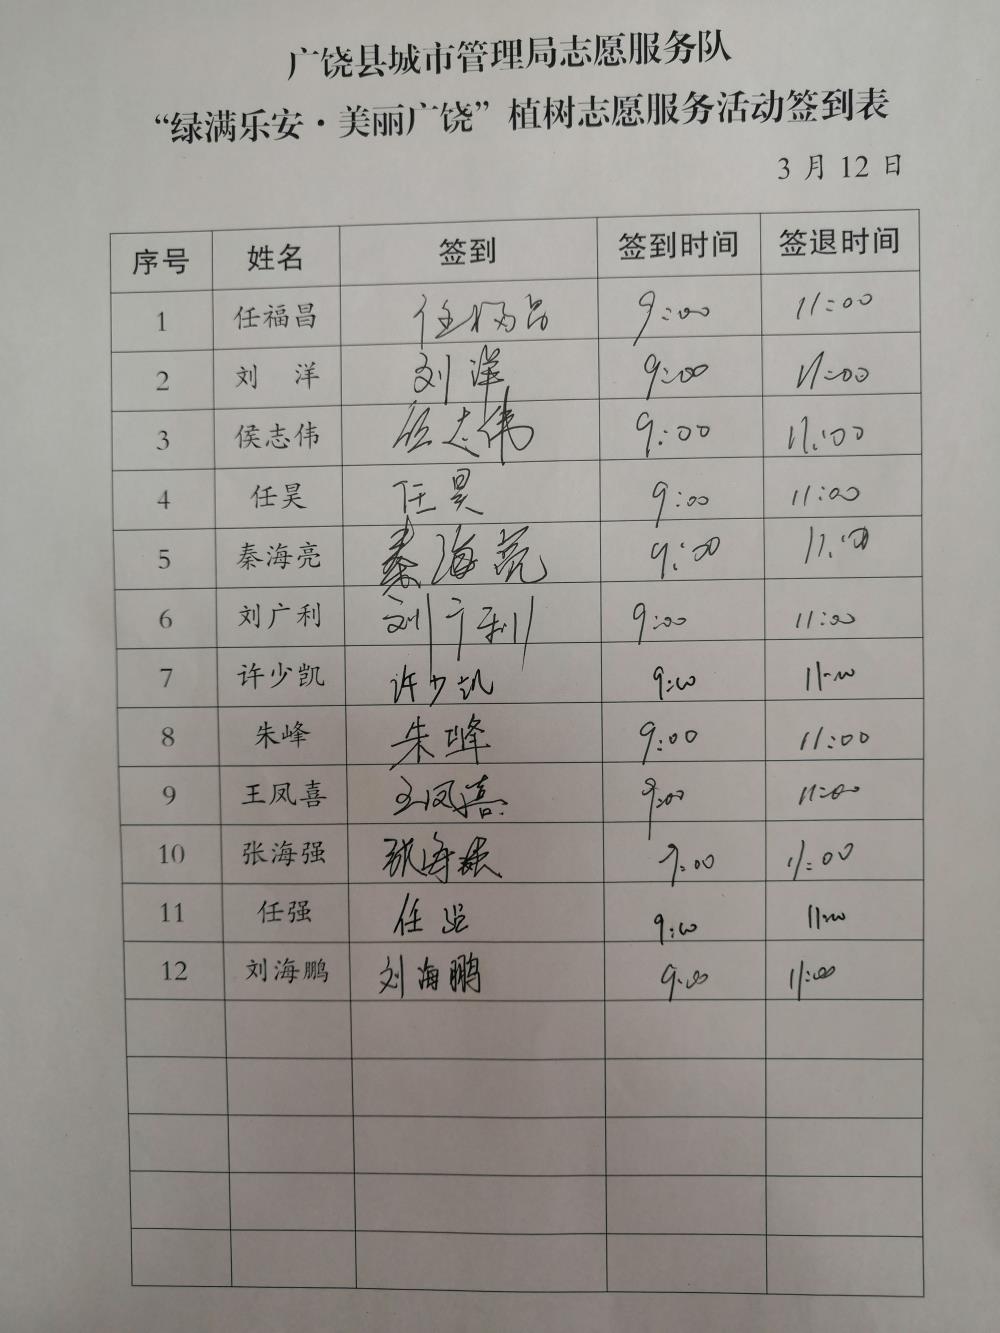 广饶县城市管理局志愿服务队
“绿满乐安·美丽广饶”植树志愿服务活动签到表
3 月 12 日
序号 姓名 签到 签到时间 签退时间
1 任福昌 任福昌 9:00 11:00
2 刘 洋 刘洋 9:00 11:00
3 侯志伟 侯志伟 9:00 11:00
4 任昊 任昊 9:00 11:00
5 秦海亮 秦海亮 9:00 11:00
6 刘广利 刘广利 9:00 11:00
7 许少凯 许少凯 9:00 11:00
8 朱峰 朱峰 9:00 11:00
9 王凤喜 王凤喜 9:00 11:00
10 张海强 张海强 9:00 11:00
11 任强 任强 9:00 11:00
12 刘海鹏 刘海鹏 9:00 11:00